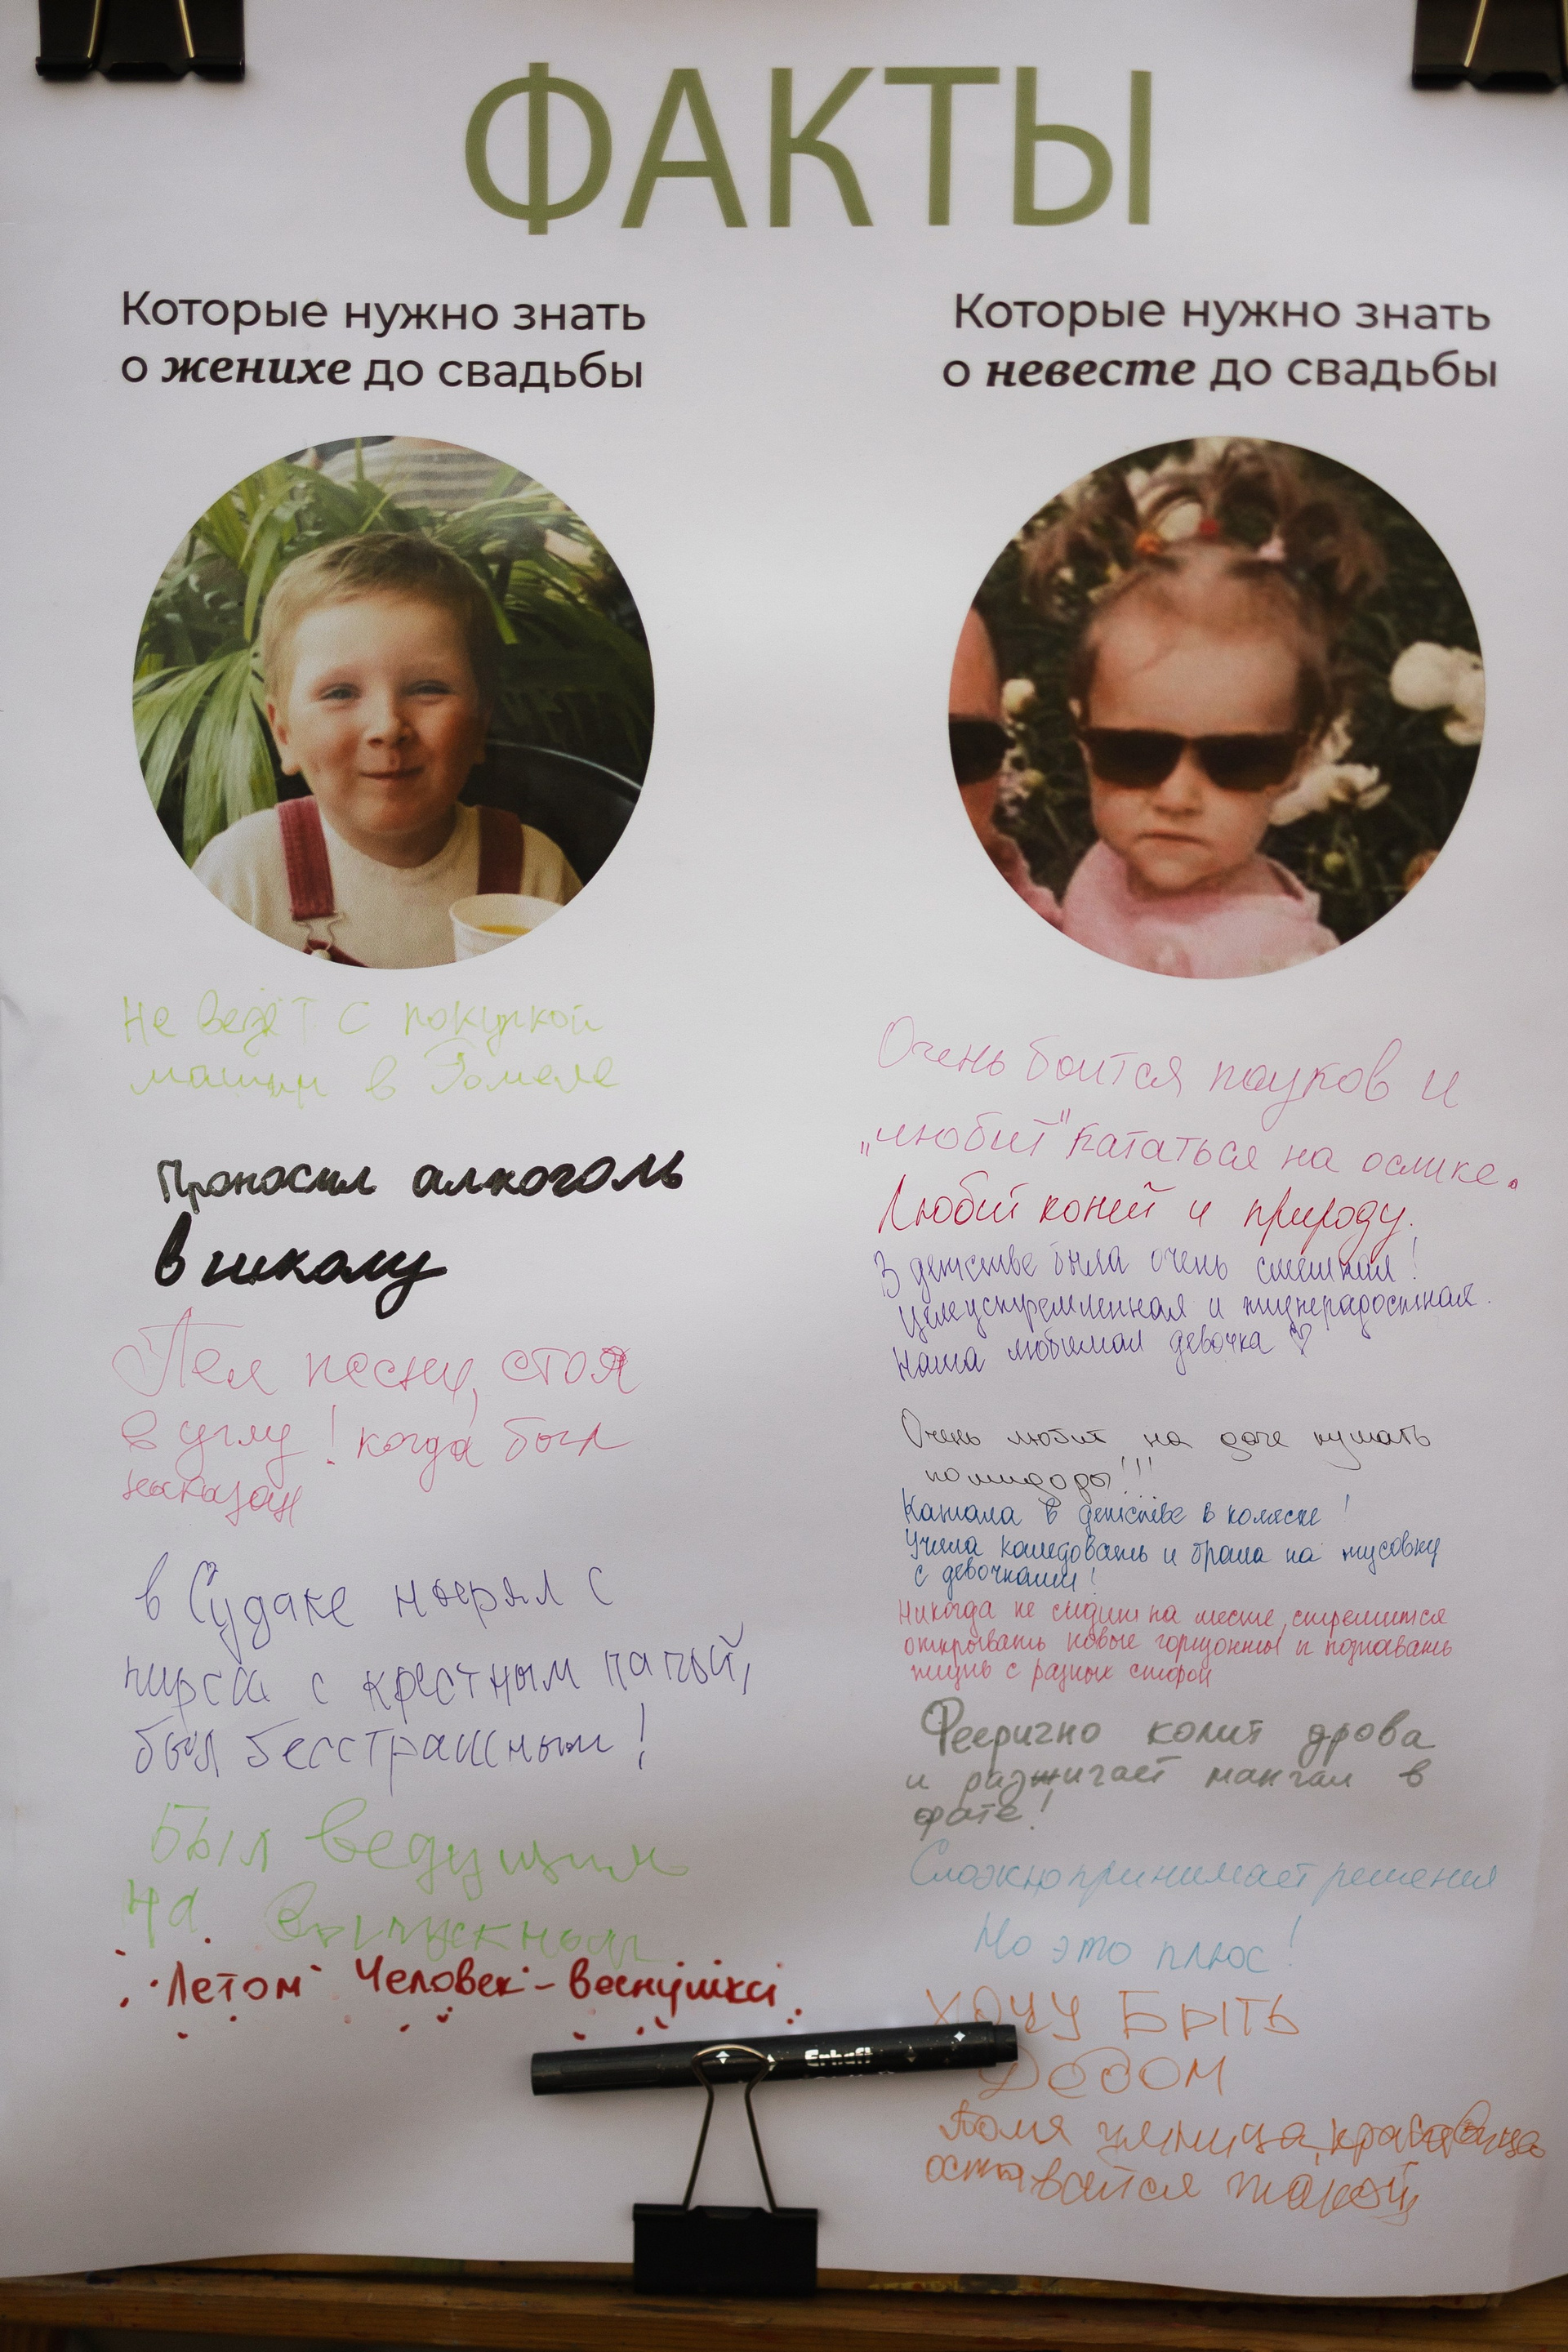 ФАКТЫ
Которые нужно знать
о женихе до свадьбы
Не везёт с покупкой
машин в Гомеле
Проносил алкоголь
в школу
Пел песни, стоя
в углу! когда был
наказан
в Судаке нырял с
пирса с крестным папой,
был бесстрашным!
Был ведущим
на Выпускном
Летом Человек-веснушка
Которые нужно знать
о невесте до свадьбы
Очень боится пауков и
"любит" кататься на ослике.
Любит коней и природу.
В детстве была очень смешная!
Целеустремленная и жизнерадостная.
Наша любимая девочка ♡
Очень любит на даче кушать
помидоры!!!
Катала в детстве в коляске!
Учила колядовать и брала на тусовку
с девочками!
Никогда не сидит на месте, стремится
открывать новые горизонты и познавать
жизнь с разных сторон
Феерично колит дрова
и разжигает мангал в
фате!
Сложно принимает решения
Но это плюс!
ХОЧУ БЫТЬ
ДЕДОМ
умница, красавица
оставайся такой
Erhaft